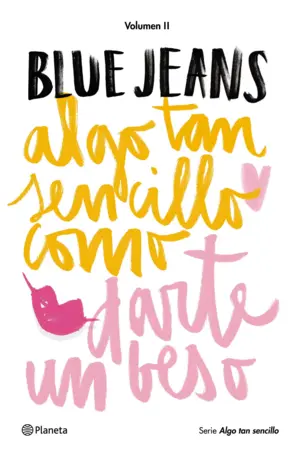 Volumen II
BLUE JEANS
algo tan
sencillo
como
darte
un beso
Planeta
Serie Algo tan sencillo